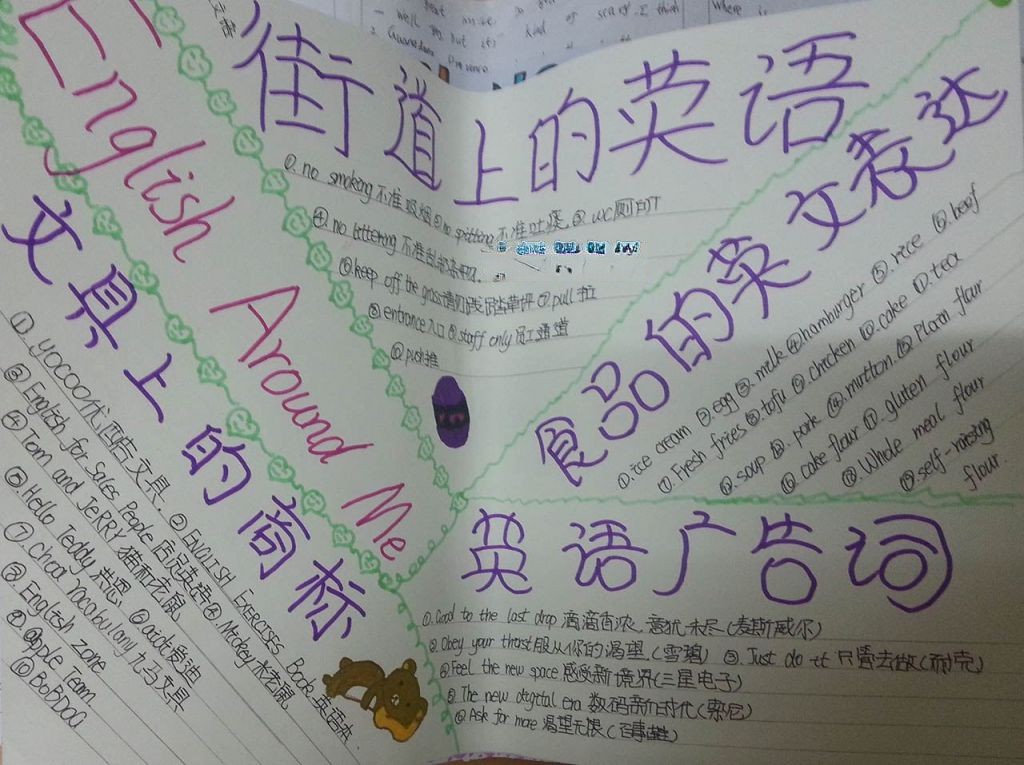 English Around Me
街道上的英语
①. no smoking 不准吸烟 ② no spitting 不准吐痰. ③ WC 厕所
④. no littering 不准乱扔杂物.
⑤ keep off the grass 请勿践踏草坪 ⑦ pull 拉
⑧ entrance 入口 ⑨ staff only 员工通道
⑩ push 推
食品的英文表达
①. ice cream ② egg ③. milk ④ hamburger ⑤. rice ⑥. beef
⑦. Fresh fries ⑧. tofu ⑨. chicken ⑩. cake ⑪. tea
⑫. soup ⑬. pork ⑭. mutton. ⑮ Plain flour
⑯ cake flour ⑰ gluten flour
⑱. Whole meal flour
⑲. self-raising
flour.
文具上的商标
①. yocoo 优酷文具. ② ENGLISH EXERCISES Book 英语
③ English for Sales People 店员英语 ④. Mickey 米老鼠
Tom and JeRRY 猫和老鼠
Hello Teddy 洪恩
⑦. Chica Vocabulary 九马文具
⑧. English zone
⑨. apple Team
⑩ BoBDOG
英语广告词
①. Good to the last drop 滴滴香浓, 意犹未尽 (麦斯威尔)
② Obey your thirst 服从你的渴望 (雪碧) ③. Just do it 只管去做 (耐克)
④ Feel the new space 感受新境界 (三星电子)
⑤ The new digital era 数码新时代 (索尼)
⑥ Ask for more 渴望无限 (百事